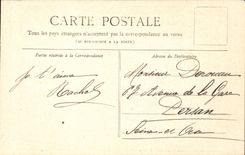 CARTE POSTALE
Tous les pays étrangers n'acceptent pas la correspondance au verso
(SE RENSEIGNER A LA POSTE)
Partie réservée à la Correspondance
Adresse du Destinataire
Je t'aime
Rachel
Monsieur
Avenue de la Gare
Persan
Seine et Oise